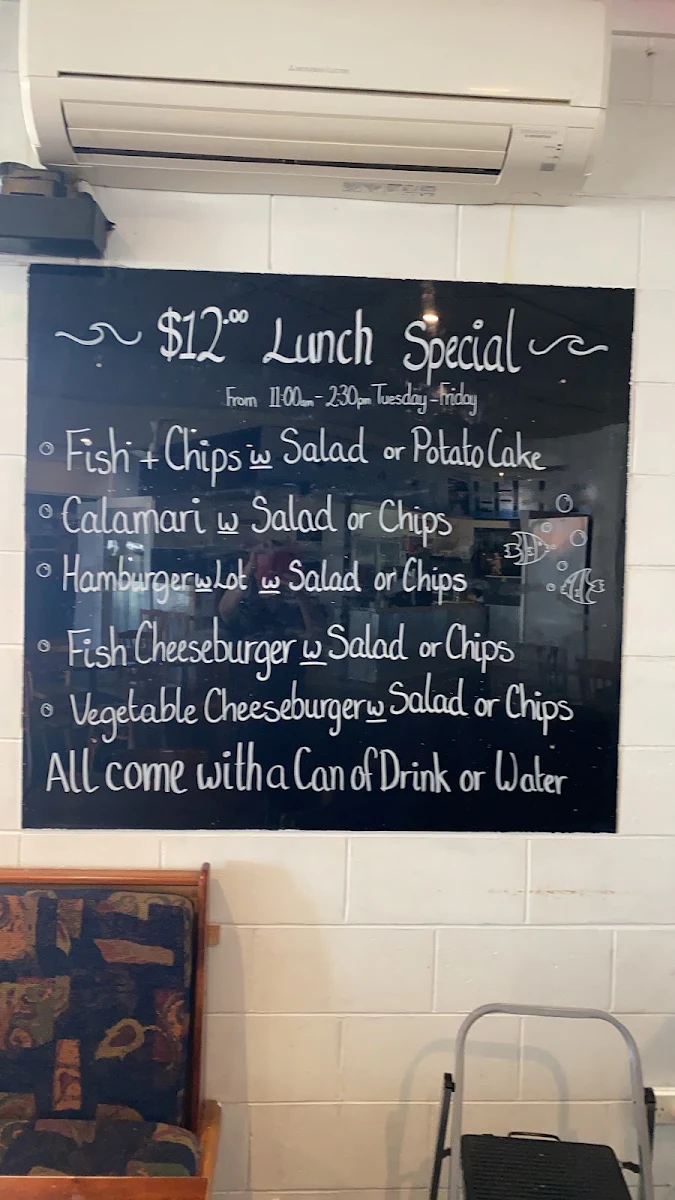 $12.00 Lunch Special
From 11:00am - 2:30pm Tuesday - Friday
Fish + Chips w Salad or Potato Cake
Calamari w Salad or Chips
Hamburger w Lot w Salad or Chips
Fish Cheeseburger w Salad or Chips
Vegetable Cheeseburger w Salad or Chips
All come with a Can of Drink or Water